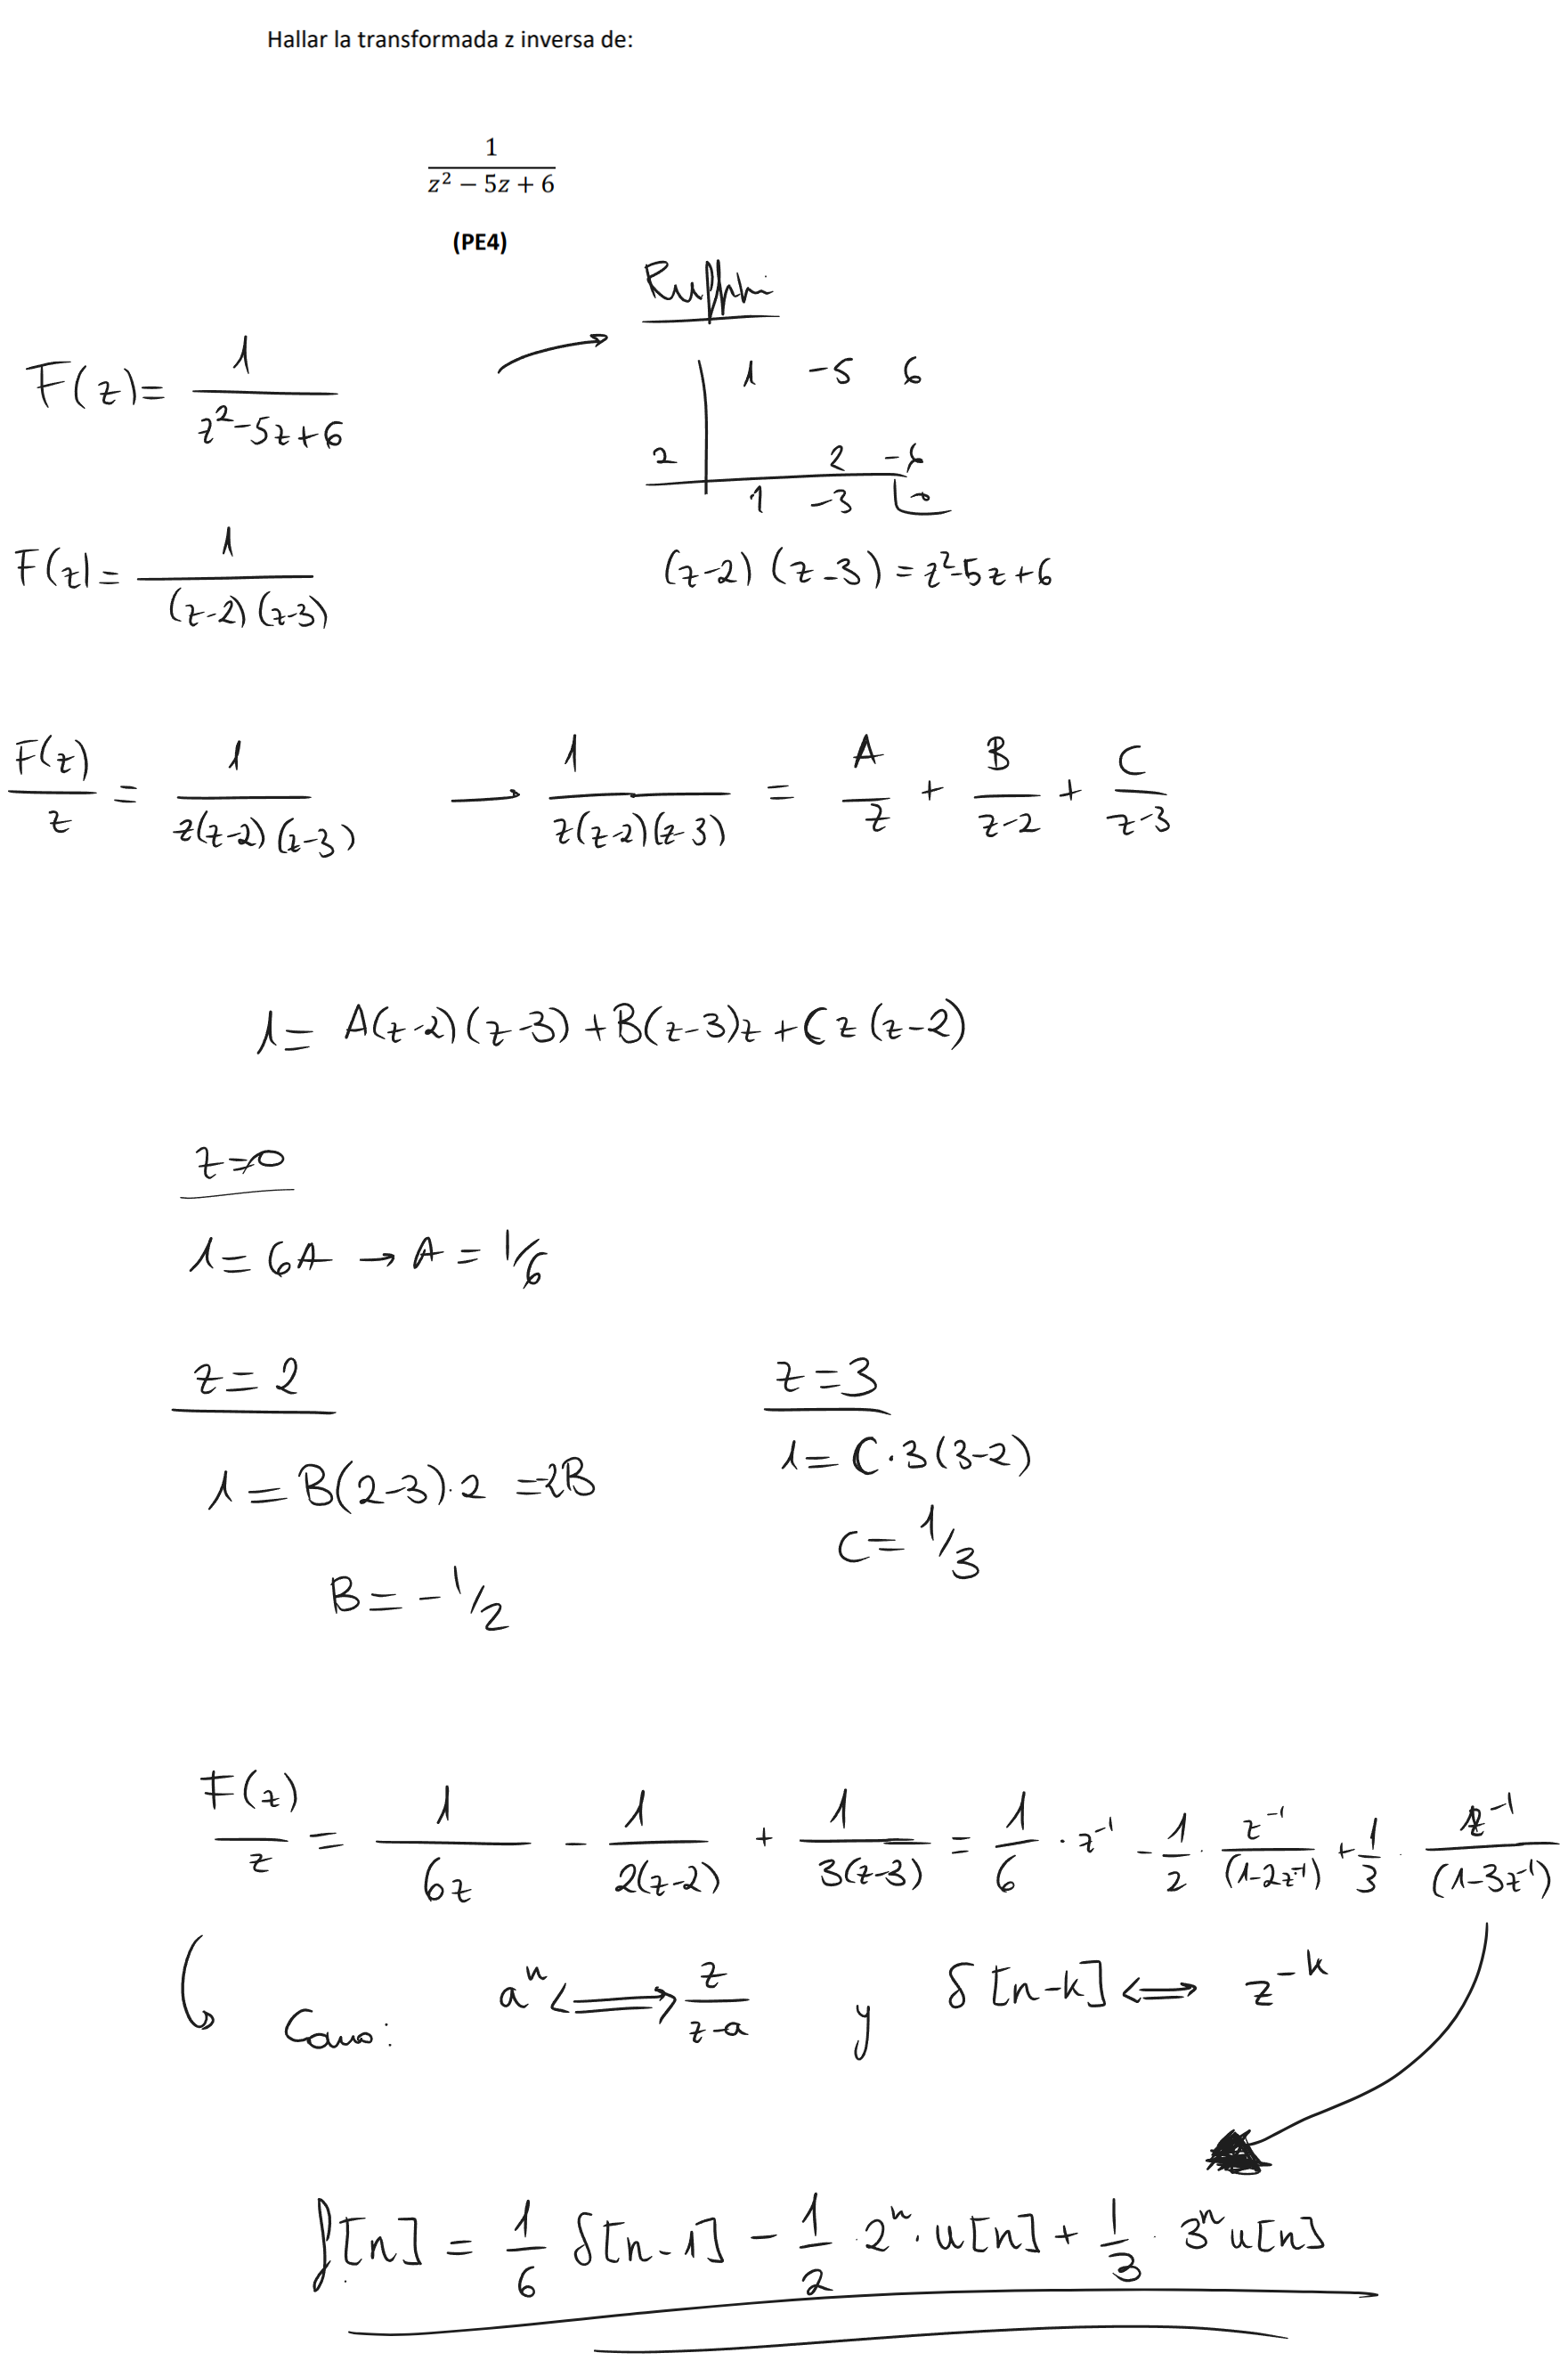 Hallar la transformada z inversa de:
1
z² − 5z + 6
(PE4)
Ruffini
F(z) = 1/(z²-5z+6)
1 -5 6
2 2 -6
1 -3 0
F(z) = 1/((z-2)(z-3))
(z-2)(z-3) = z²-5z+6
F(z)/z = 1/(z(z-2)(z-3)) → 1/(z(z-2)(z-3)) = A/z + B/(z-2) + C/(z-3)
1 = A(z-2)(z-3) + B(z-3)z + Cz(z-2)
z=0
1 = 6A → A = 1/6
z = 2
1 = B(2-3)·2 = -2B
B = -1/2
z = 3
1 = C·3(3-2)
C = 1/3
F(z)/z = 1/(6z) - 1/(2(z-2)) + 1/(3(z-3)) = 1/6 · z⁻¹ - 1/2 · z⁻¹/(1-2z⁻¹) + 1/3 · z⁻¹/(1-3z⁻¹)
Como: aⁿ ⟺ z/(z-a) y δ[n-k] ⟺ z⁻ᵏ
f[n] = 1/6 δ[n-1] - 1/2 · 2ⁿ · u[n] + 1/3 · 3ⁿ u[n]